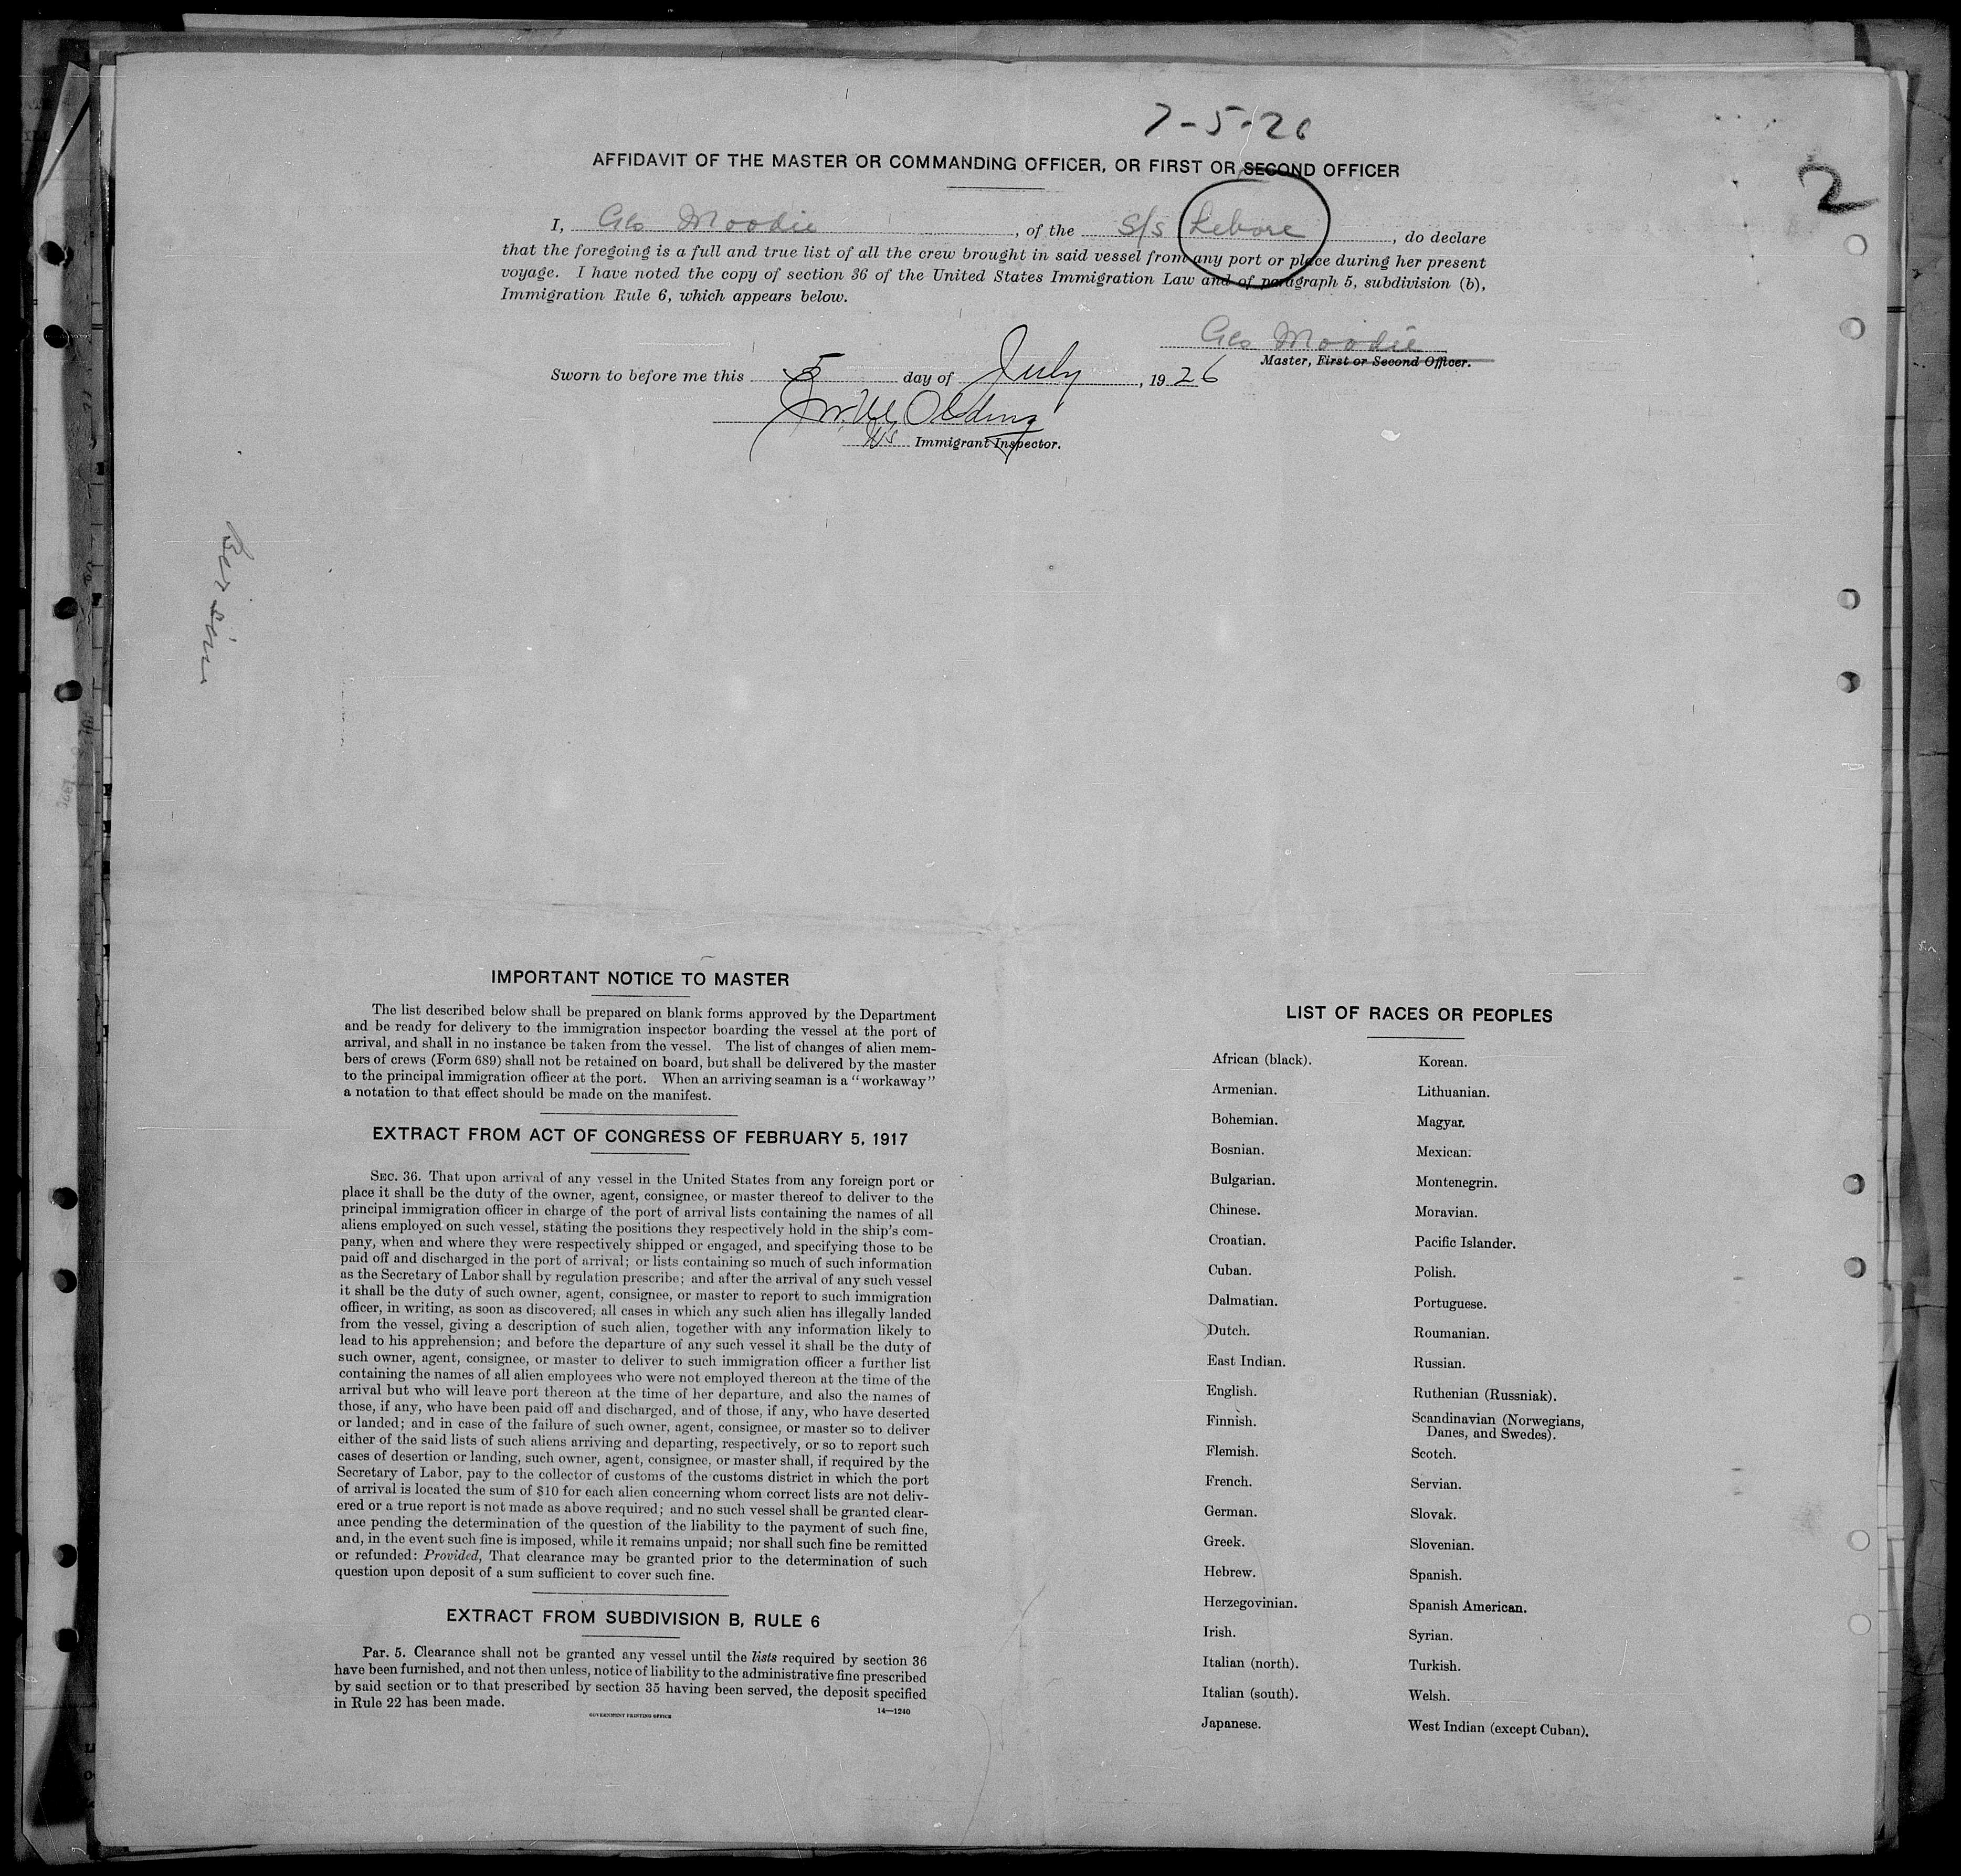 7-5-26
2
AFFIDAVIT OF THE MASTER OR COMMANDING OFFICER, OR FIRST OR SECOND OFFICER
I, Geo Moodie, of the S/S Lebore, do declare
that the foregoing is a full and true list of all the crew brought in said vessel from any port or place during her present
voyage. I have noted the copy of section 36 of the United States Immigration Law and of paragraph 5, subdivision (b),
Immigration Rule 6, which appears below.
Geo Moodie
Master, First or Second Officer.
Sworn to before me this 5 day of July, 1926
Olding
Immigrant Inspector.
IMPORTANT NOTICE TO MASTER
The list described below shall be prepared on blank forms approved by the Department
and be ready for delivery to the immigration inspector boarding the vessel at the port of
arrival, and shall in no instance be taken from the vessel. The list of changes of alien mem-
bers of crews (Form 689) shall not be retained on board, but shall be delivered by the master
to the principal immigration officer at the port. When an arriving seaman is a "workaway"
a notation to that effect should be made on the manifest.
EXTRACT FROM ACT OF CONGRESS OF FEBRUARY 5, 1917
SEC. 36. That upon arrival of any vessel in the United States from any foreign port or
place it shall be the duty of the owner, agent, consignee, or master thereof to deliver to the
principal immigration officer in charge of the port of arrival lists containing the names of all
aliens employed on such vessel, stating the positions they respectively hold in the ship's com-
pany, when and where they were respectively shipped or engaged, and specifying those to be
paid off and discharged in the port of arrival; or lists containing so much of such information
as the Secretary of Labor shall by regulation prescribe; and after the arrival of any such vessel
it shall be the duty of such owner, agent, consignee, or master to report to such immigration
officer, in writing, as soon as discovered, all cases in which any such alien has illegally landed
from the vessel, giving a description of such alien, together with any information likely to
lead to his apprehension; and before the departure of any such vessel it shall be the duty of
such owner, agent, consignee, or master to deliver to such immigration officer a further list
containing the names of all alien employees who were not employed thereon at the time of the
arrival but who will leave port thereon at the time of her departure, and also the names of
those, if any, who have been paid off and discharged, and of those, if any, who have deserted
or landed; and in case of the failure of such owner, agent, consignee, or master so to deliver
either of the said lists of such aliens arriving and departing, respectively, or so to report such
cases of desertion or landing, such owner, agent, consignee, or master shall, if required by the
Secretary of Labor, pay to the collector of customs of the customs district in which the port
of arrival is located the sum of $10 for each alien concerning whom correct lists are not deliv-
ered or a true report is not made as above required; and no such vessel shall be granted clear-
ance pending the determination of the question of the liability to the payment of such fine,
and, in the event such fine is imposed, while it remains unpaid; nor shall such fine be remitted
or refunded: Provided, That clearance may be granted prior to the determination of such
question upon deposit of a sum sufficient to cover such fine.
EXTRACT FROM SUBDIVISION B, RULE 6
Par. 5. Clearance shall not be granted any vessel until the lists required by section 36
have been furnished, and not then unless, notice of liability to the administrative fine prescribed
by said section or to that prescribed by section 35 having been served, the deposit specified
in Rule 22 has been made.
GOVERNMENT PRINTING OFFICE 14—1240
LIST OF RACES OR PEOPLES
African (black). Korean.
Armenian. Lithuanian.
Bohemian. Magyar.
Bosnian. Mexican.
Bulgarian. Montenegrin.
Chinese. Moravian.
Croatian. Pacific Islander.
Cuban. Polish.
Dalmatian. Portuguese.
Dutch. Roumanian.
East Indian. Russian.
English. Ruthenian (Russniak).
Finnish. Scandinavian (Norwegians,
Danes, and Swedes).
Flemish. Scotch.
French. Servian.
German. Slovak.
Greek. Slovenian.
Hebrew. Spanish.
Herzegovinian. Spanish American.
Irish. Syrian.
Italian (north). Turkish.
Italian (south). Welsh.
Japanese. West Indian (except Cuban).